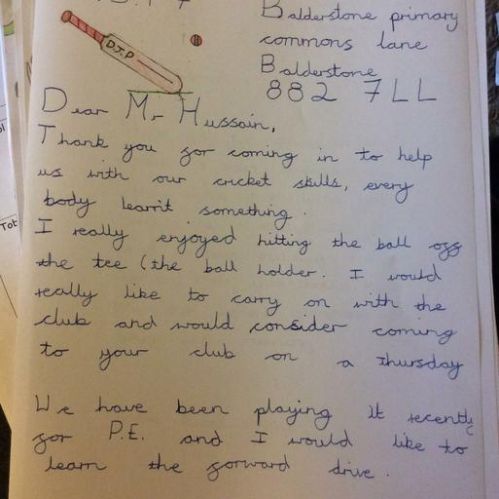 Balderstone primary
commons lane
Balderstone
882 7LL
D.J.P
Dear Mr Hussain,
Thank you for coming in to help
us with our cricket skills, every
body learnit something.
I really enjoyed hitting the ball off
the tee (the ball holder. I would
really like to carry on with the
club and would consider coming
to your club on a thursday
We have been playing it recently
for P.E. and I would like to
learn the forward drive.